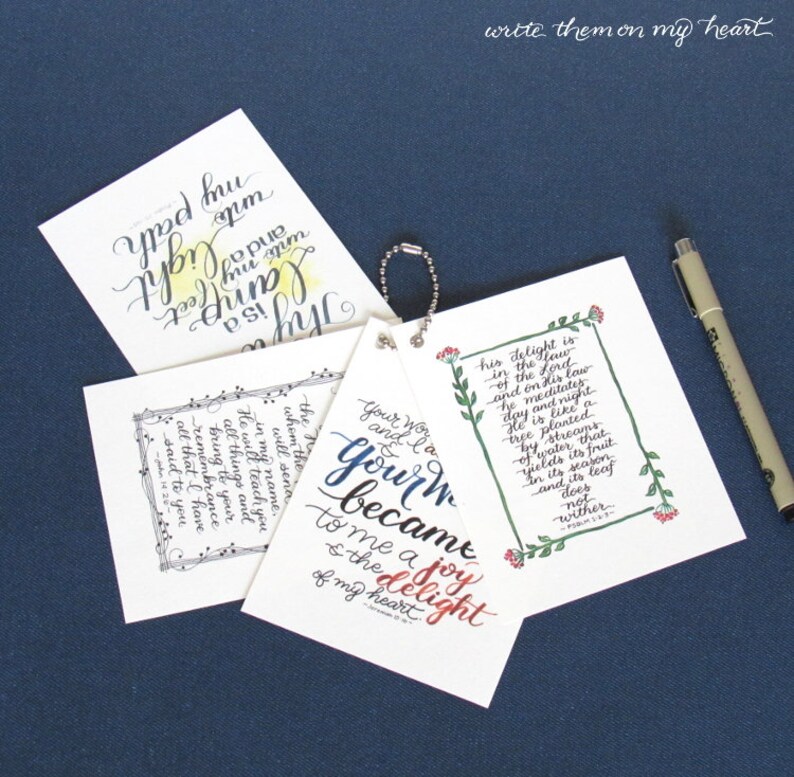 write them on my heart
Thy
is a
lamp
unto my feet
and a
light
unto
my path
his delight is
in the law
of the Lord
and on His law
he meditates
day and night
He is like a
tree planted
by streams
of water that
yields its fruit
in its season
and its leaf
does
not
wither.
~ PSALM 1:2-3 ~
Your
and I
&
Your
became
to me a joy
& the delight
of my heart.
the
whom the
will send
in my name,
He will teach you
all things and
bring to your
remembrance
all that I have
said to you
~ john 14:26 ~